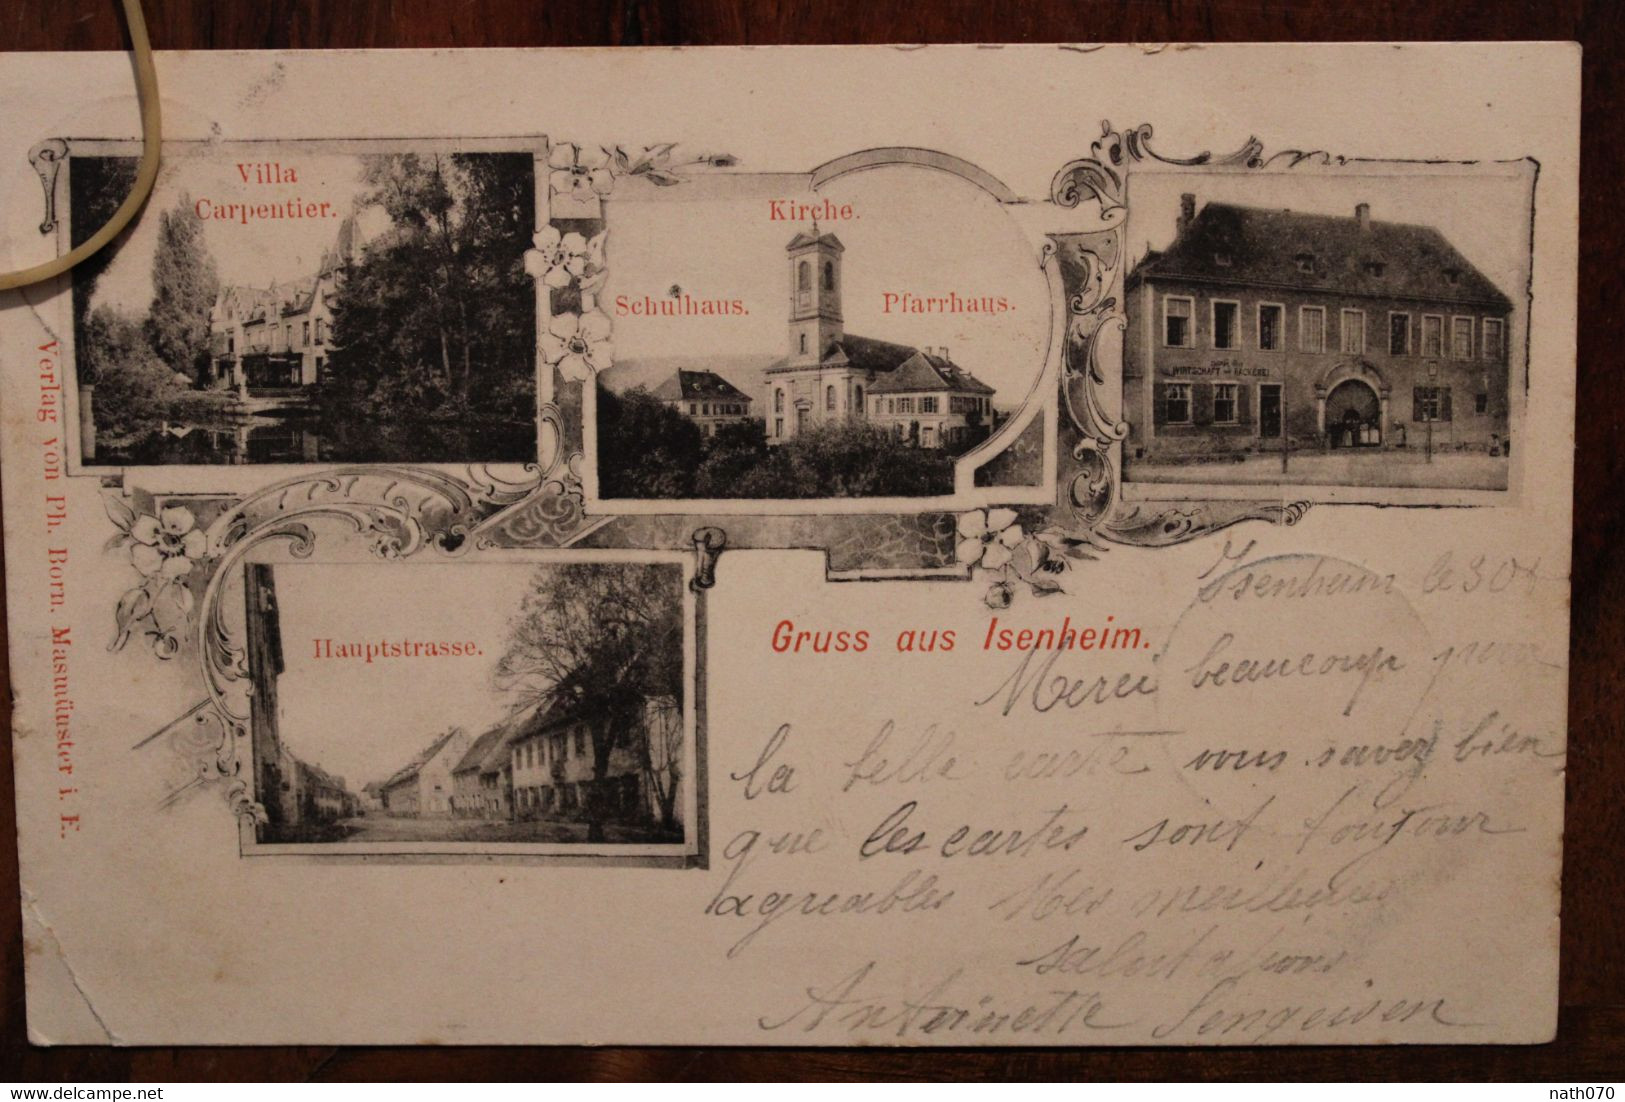 Villa
Carpentier.
Kirche.
Schulhaus.
Pfarrhaus.
WIRTSCHAFT BÄCKEREI
Verlag von Ph. Born. Masmünster i. E.
Hauptstrasse.
Gruss aus Isenheim.
Isenheim le 30
Merci beaucoup pour
la belle carte vous savez bien
que les cartes sont toujour
agreables Mes meilleures
salutations
Antoinette Sengeisen
delcampe.net
nath070